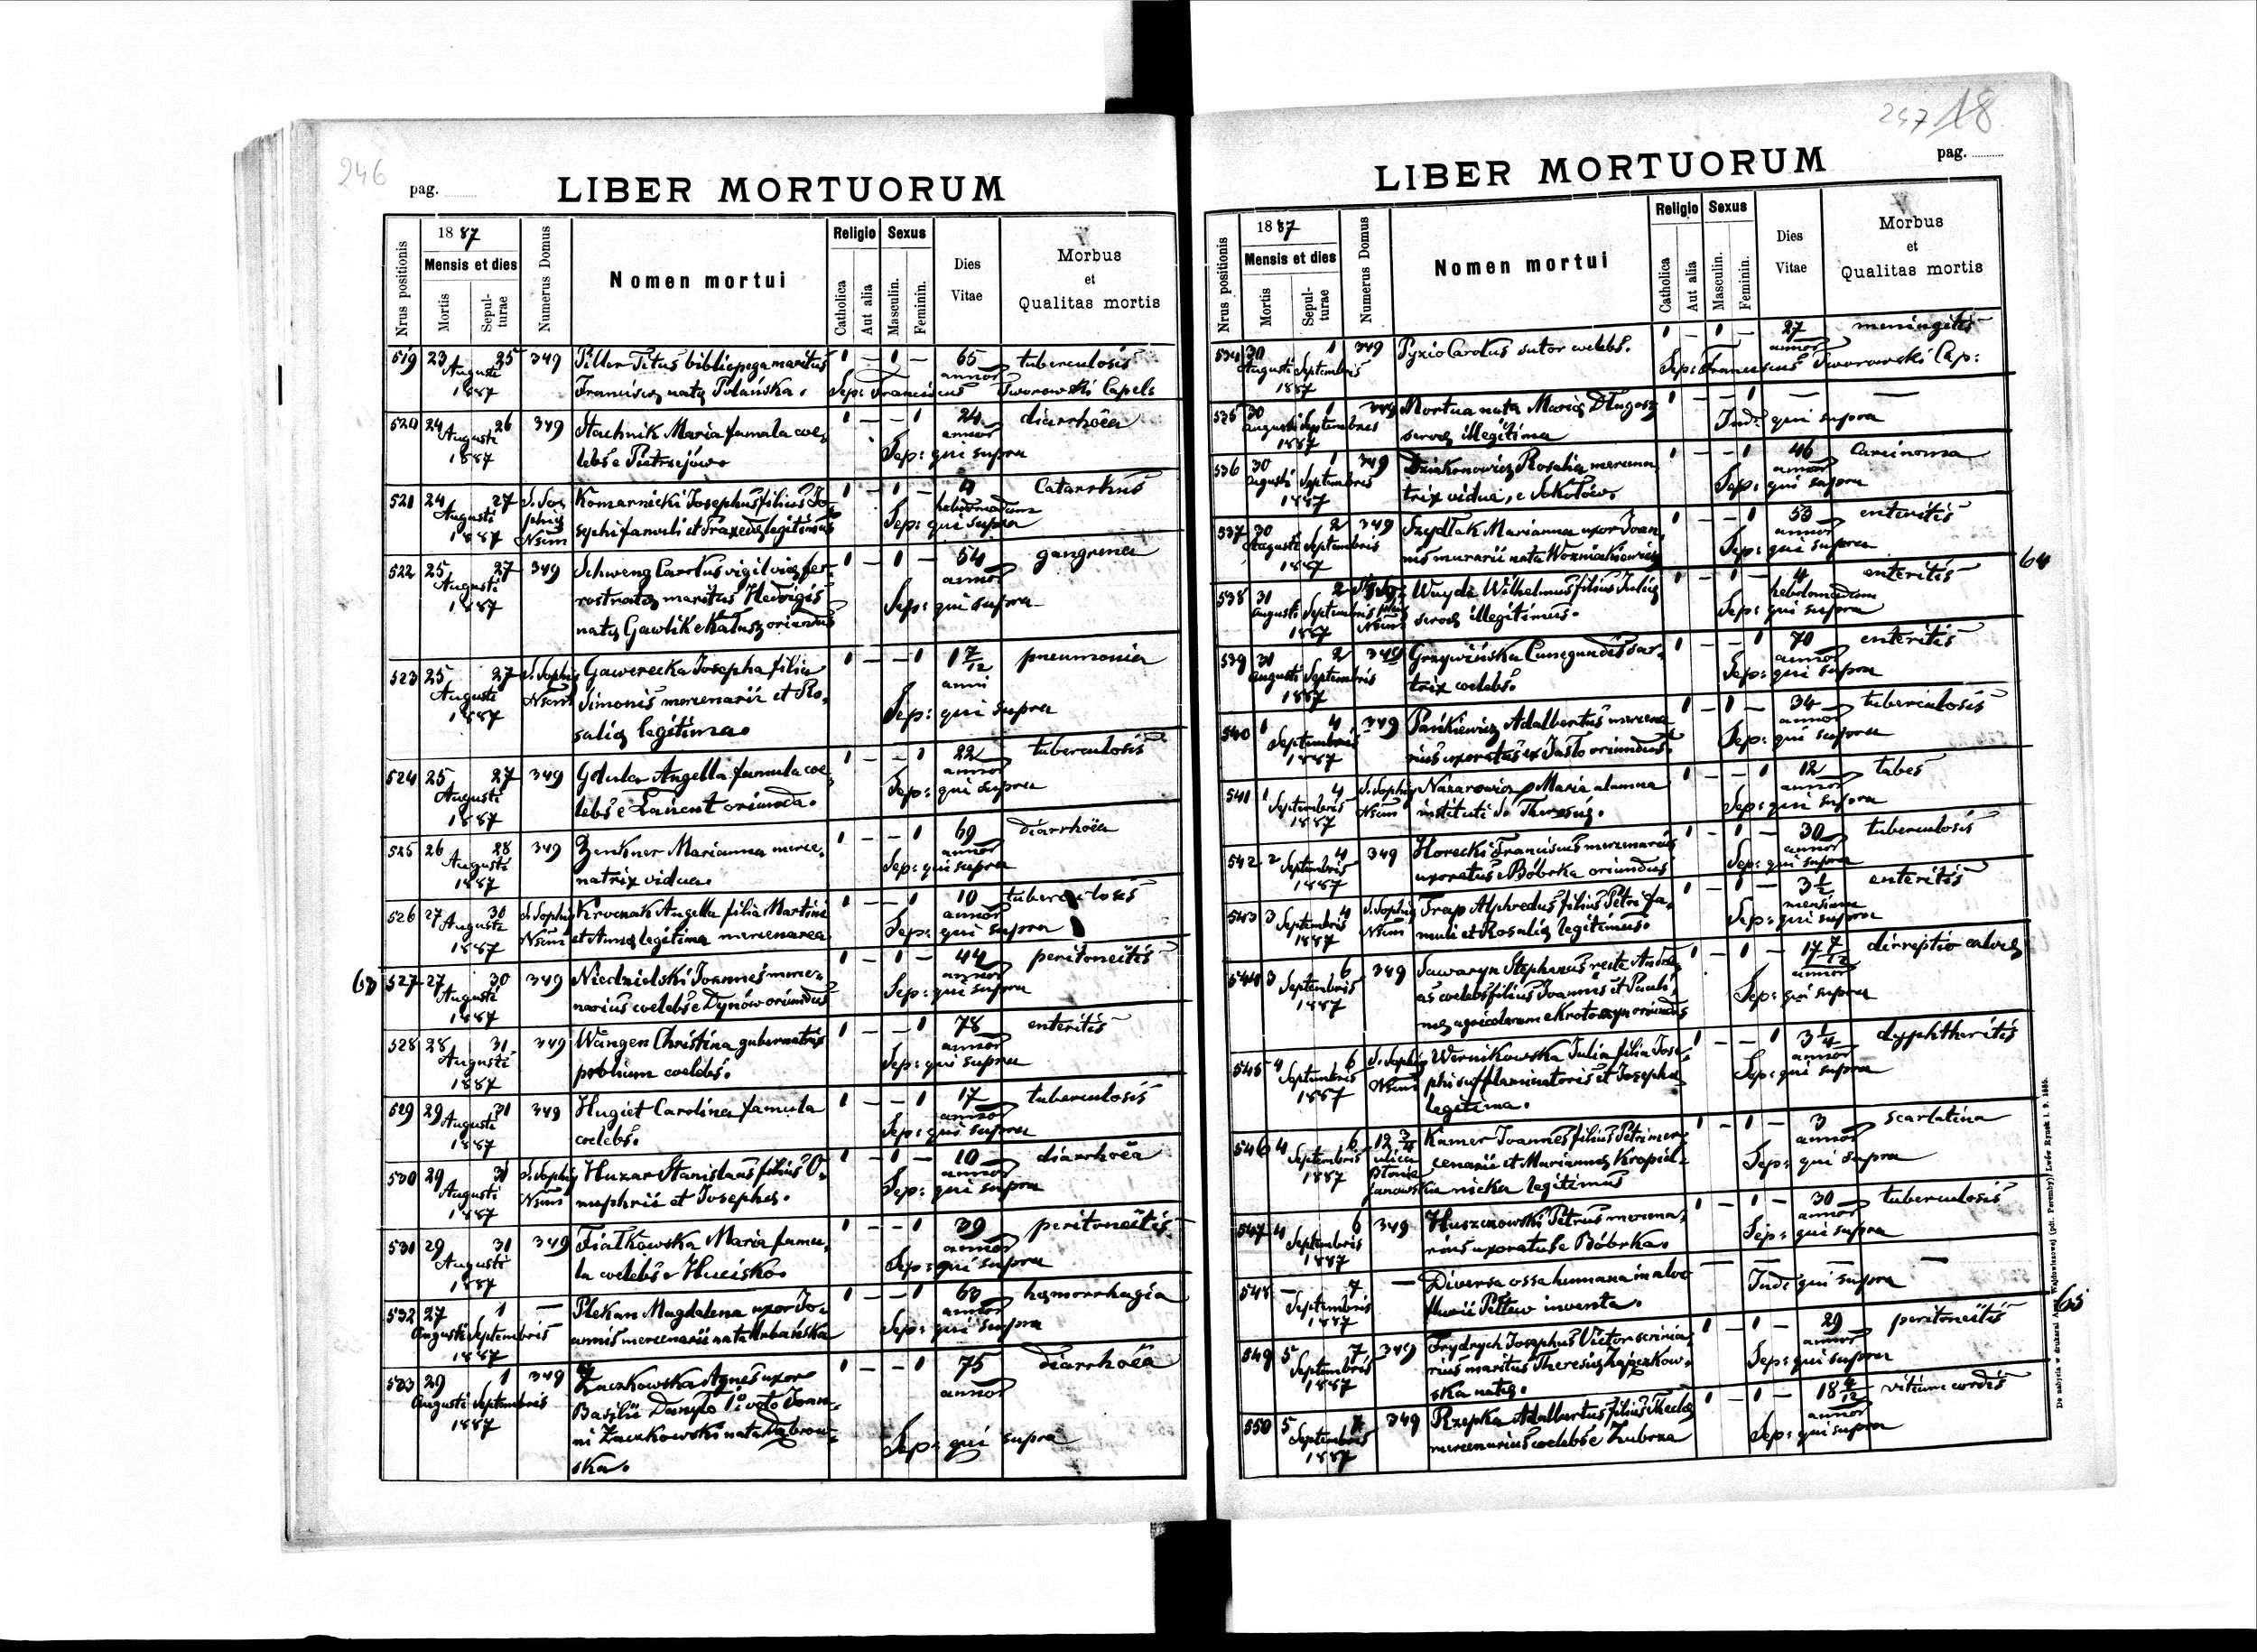 246
pag.
LIBER MORTUORUM
Nrus positionis
1887
Mensis et dies
Mortis
Sepulturae
Numerus Domus
Nomen mortui
Religio
Catholica
Aut alia
Sexus
Masculin.
Feminin.
Dies
Vitae
Morbus
et
Qualitas mortis
519 23 25 349 Piller Titus bibliopega maritus 1 – 1 – 65 tuberculosis
Augusti annor
1887 Francisca nata Polańska. Sep: Franciscus Tworowski Capel:
520 24 26 349 Stachnik Maria famula coe- 1 – – 1 24 diarrhoea
Augusti annor
1887 lebs e Pietrzejów. Sep: qui supra
521 24 27 S. Sophiae Komarnicki Josephus filius Jo- 1 – 1 – 4 Catarrhus
Augusti hebdomadum
1887 Nsum sephi famuli et Praxedae legitimus Sep: qui supra
522 25 27 349 Schweng Carolus vigil viae fer- 1 – 1 – 54 gangrena
Augusti rostratae maritus Hedvigis annor
1887 natae Gawlik e Kałusz oriundus Sep: qui supra
523 25 27 S. Sophiae Gawerecka Josepha filia 1 – – 1 1 7/12 pneumonia
Augusti Nsum Simonis mercenarii et Ro- anni
1887 saliae legitima. Sep: qui supra
524 25 27 349 Gdula Angella famula coe- 1 – – 1 22 tuberculosis
Augusti annor
1887 lebs e Łańcut oriunda. Sep: qui supra
525 26 28 349 Zenkner Marianna merce- 1 – – 1 69 diarrhoea
Augusti annor
1887 natrix vidua. Sep: qui supra
526 27 30 S. Sophiae Krvenak Angella filia Martini 1 – – 1 10 tuberculosis
Augusti annor
1887 Nsum et Annae legitima mercenarea Sep: qui supra
63
527 27 30 349 Niedzielski Joannes merce- 1 – 1 – 44 peritoneitis
Augusti annor
1887 narius coelebs e Dynów oriundus Sep: qui supra
528 28 31 349 Wangen Christina gubernatrix 1 – – 1 78 enteritis
Augusti annor
1887 prolium coelebs. Sep: qui supra
529 29 31 349 Hugiet Carolina famula 1 – – 1 17 tuberculosis
Augusti annor
1887 coelebs. Sep: qui supra
530 29 31 S. Sophiae Huzar Stanislaus filius O- 1 – 1 – 10 diarrhoea
Augusti annor
1887 Nsum nuphrii et Josephae. Sep: qui supra
531 29 31 349 Fiałkowska Maria famu- 1 – – 1 39 peritoneitis
Augusti annor
1887 la coelebs e Hucisko. Sep: qui supra
532 27 1 – Plekan Magdalena uxor Jo- 1 – – 1 63 haemorrhagia
Augusti Septembris annor
1887 annis mercenarii nata Urbańska Sep: qui supra
533 29 1 349 Zaczkowska Agnes uxor 1 – – 1 75 diarrhoea
Augusti Septembris Basilii Danyło 1o voto Joan- annor
1887 ni Zaczkowski nata Dąbrow-
ska. Sep: qui supra
247 18
pag.
LIBER MORTUORUM
Nrus positionis
1887
Mensis et dies
Mortis
Sepulturae
Numerus Domus
Nomen mortui
Religio
Catholica
Aut alia
Sexus
Masculin.
Feminin.
Dies
Vitae
Morbus
et
Qualitas mortis
534 30 1 349 Pyzio Carolus sutor coelebs. 1 – 1 – 27 meningitis
Augusti Septembris annor
1887 Sep: Franciscus Tworowski Cap:
535 30 1 349 Mortua nata Mariae Długosz 1 – – 1 – –
Augusti Septembris
1887 servae illegitima Ind: qui supra
536 30 1 349 Dziakonowicz Rosalia mercena- 1 – – 1 46 Carcinoma
Augusti Septembris annor
1887 trix vidua, e Sokołów. Sep: qui supra
537 30 2 349 Szydłak Marianna uxor Joan- 1 – – 1 53 enteritis
Augusti Septembris annor
1887 nis murarii nata Wozniakiewicz Sep: qui supra
64
538 31 2 Wuyda Wilhelmus filius Juliae 1 – 1 – 4 enteritis
Augusti Septembris hebdomadum
1887 Nsum servae illegitimus. Sep: qui supra
539 31 2 349 Grzywińska Cunegundis sar- 1 – – 1 70 enteritis
Augusti Septembris annor
1887 trix coelebs. Sep: qui supra
540 1 4 349 Pańkiewicz Adalbertus mercena- 1 – 1 – 34 tuberculosis
Septembris annor
1887 rius uxoratus ex Jasło oriundus. Sep: qui supra
541 1 4 S. Sophiae Nazarowicz Maria alumna 1 – – 1 12 tabes
Septembris annor
1887 Nsum instituti S. Theresiae. Sep: qui supra
542 2 4 349 Horecki Franciscus mercenarius 1 – 1 – 30 tuberculosis
Septembris annor
1887 uxoratus e Bóbrka oriundus Sep: qui supra
543 3 4 S. Sophiae Trap Alphredus filius Petri fa- 1 – 1 – 3½ enteritis
Septembris mensium
1887 Nsum muli et Rosaliae legitimus. Sep: qui supra
544 3 6 349 Sawaryn Stephanus recte Andre- 1 – 1 – 17 7/12 dirreptio calvae
Septembris as coelebs filius Joannis et Parah- annor
1887 nae agricolarum e Krotoszyn oriundus Sep: qui supra
545 4 6 S. Sophiae Wernikowska Julia filia Jose- 1 – – 1 3¼ dyphtheritis
Septembris Nsum phi sufflaminatoris et Josepha annor
1887 legitima. Sep: qui supra
546 4 6 12¾ Kamer Joannes filius Petri mer- 1 – 1 – 3 scarlatina
Septembris ulica cenarii et Mariannae Kropiel- annor
1887 Błonie
Janowska nicka legitimus Sep: qui supra
547 4 6 349 Huszczowski Petrus mercena- 1 – 1 – 30 tuberculosis
Septembris annor
1887 rius uxoratus e Bóbrka. Sep: qui supra
548 – 7 – Diversa ossa humana in alveo – – – – – –
Septembris
1887 fluvii Pełtew inventa. Ind: qui supra
65
549 5 7 349 Frydrych Josephus Victor scrinia- 1 – 1 – 29 peritoneitis
Septembris rius maritus Theresiae Zajączkow- annor
1887 ska natae. Sep: qui supra
550 5 7 349 Rzepka Adalbertus filius Theclae 1 – 1 – 18 4/12 vitium cordis
Septembris annor
1887 mercenarius coelebs e Zubrza Sep: qui supra